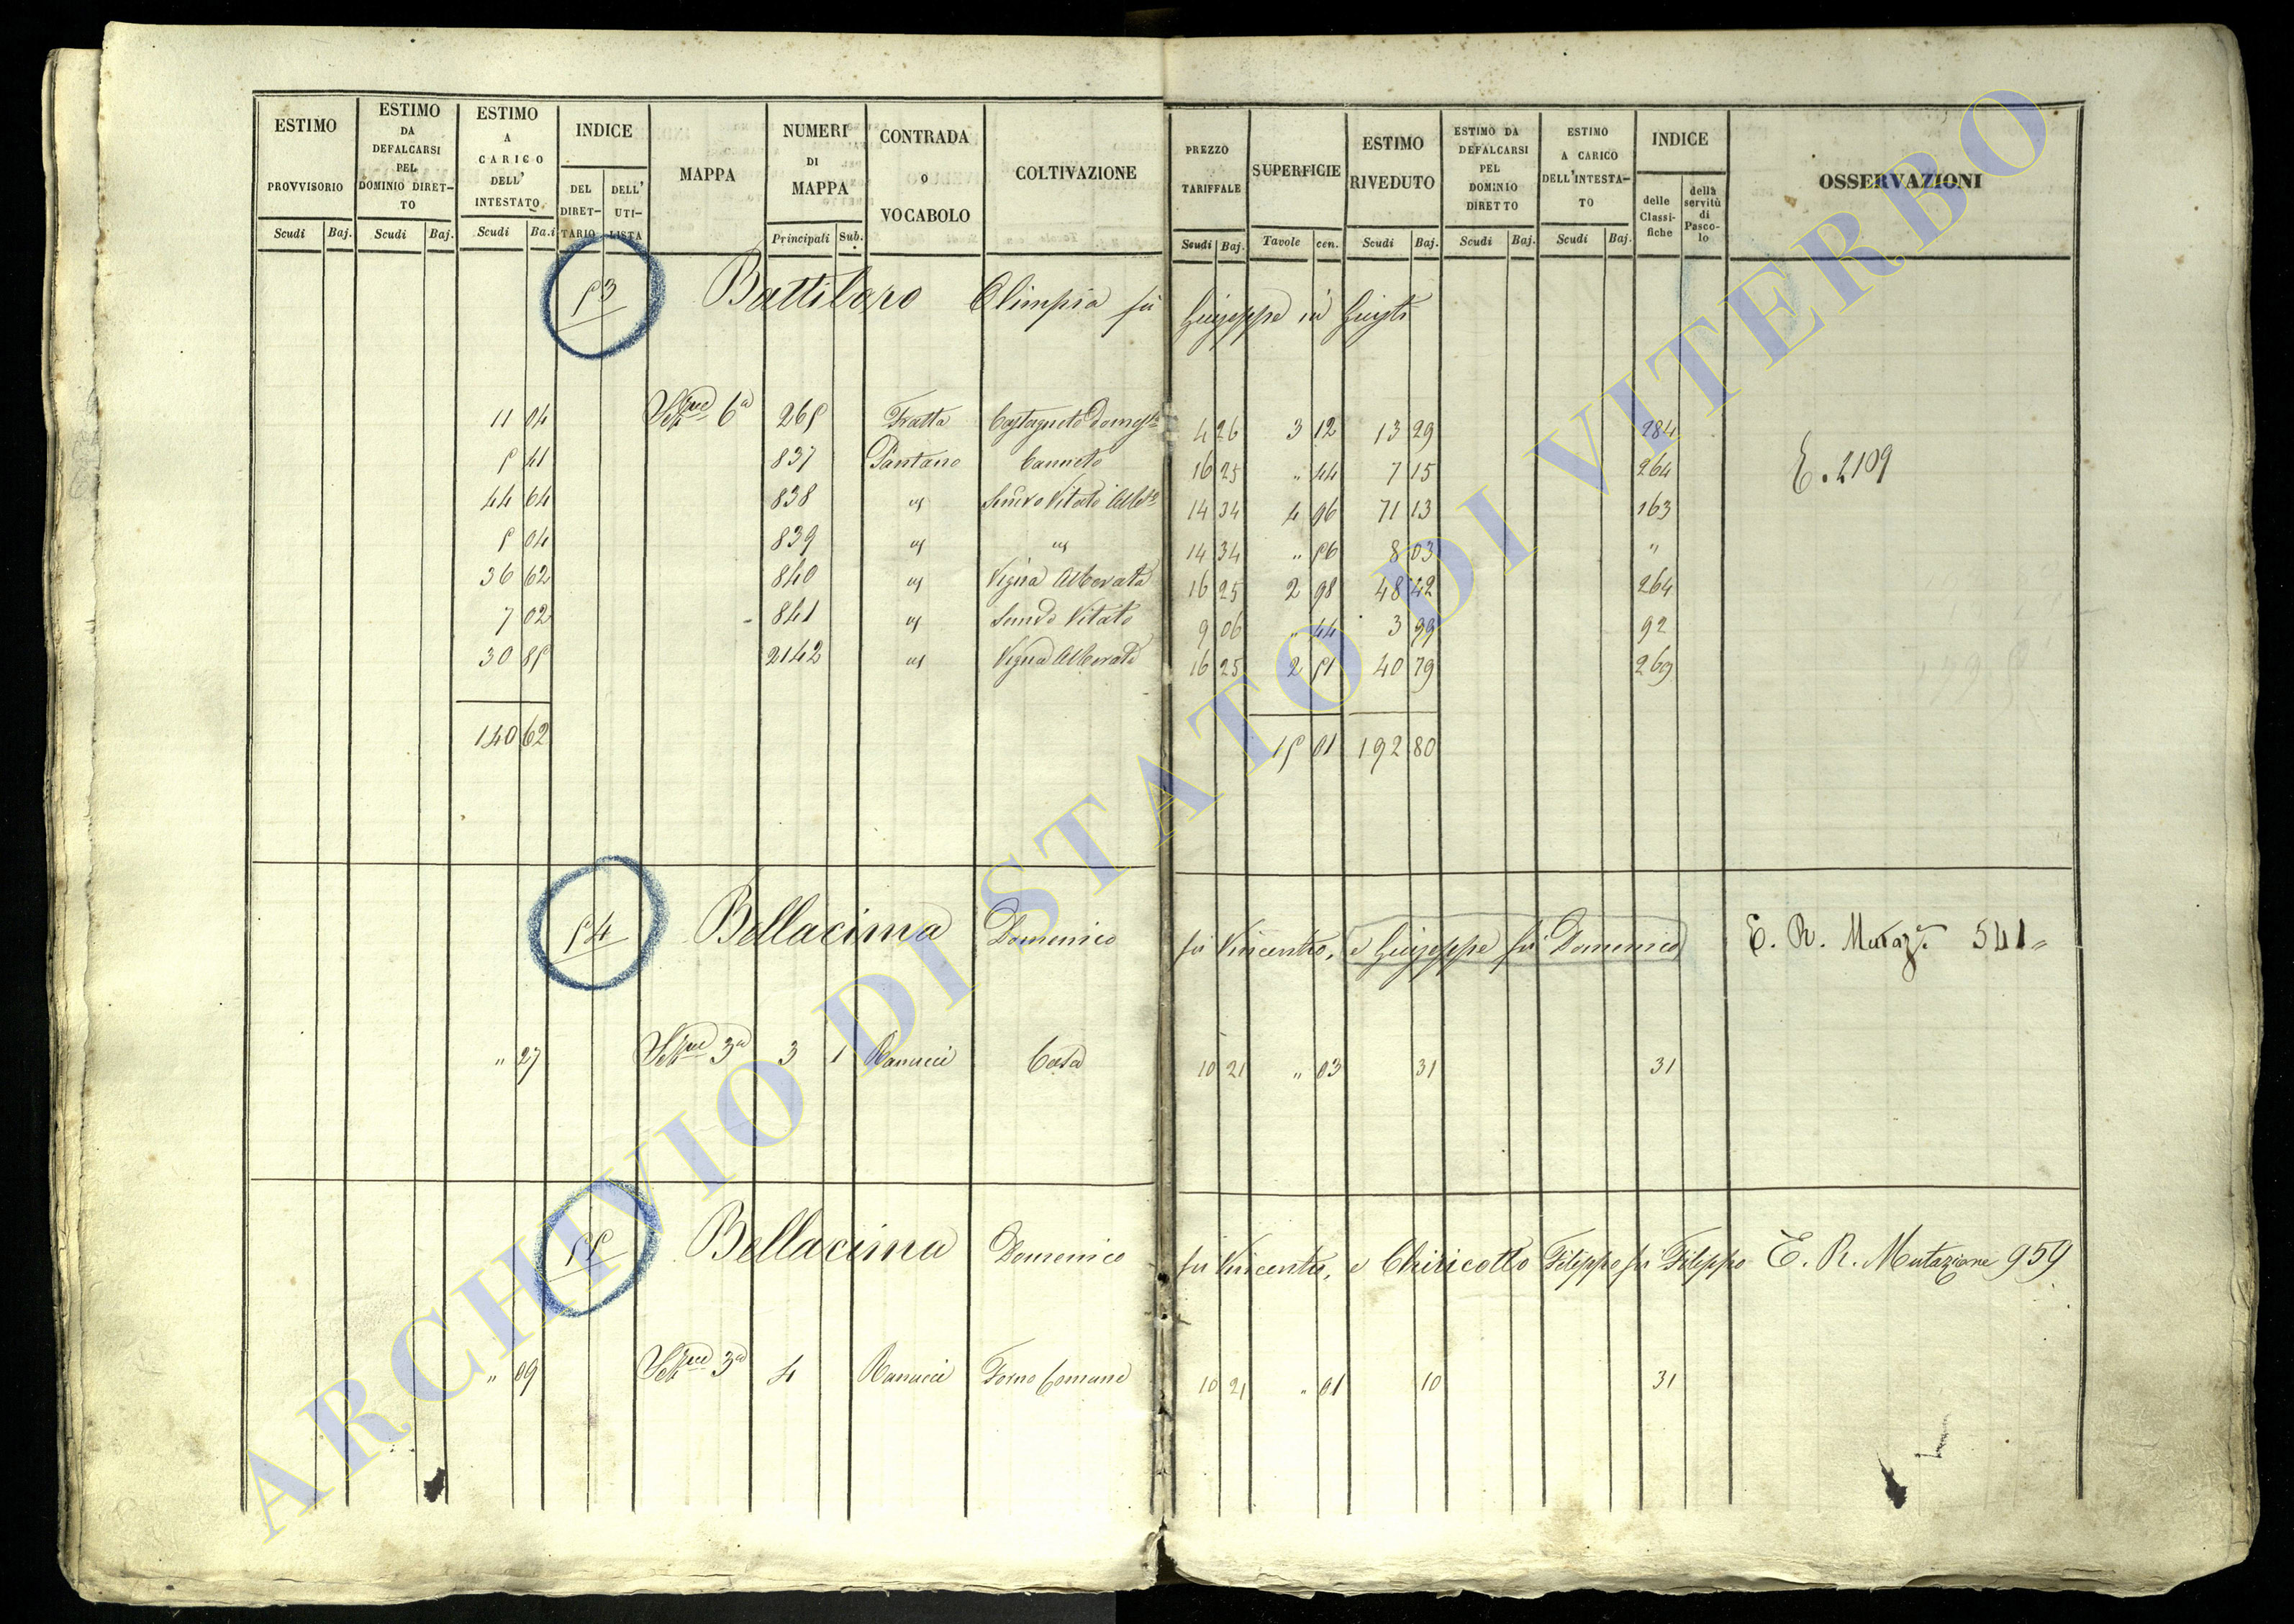 ESTIMO PROVVISORIO Scudi Baj.
ESTIMO DA DEFALCARSI PEL DOMINIO DIRET-TO Scudi Baj.
ESTIMO A CARICO DELL' INTESTATO Scudi Ba.i
INDICE DEL DIRET-TARIO DELL' UTI-LISTA
MAPPA
NUMERI DI MAPPA Principali Sub.
CONTRADA O VOCABOLO
COLTIVAZIONE
PREZZO TARIFFALE Scudi Baj.
SUPERFICIE Tavole cen.
ESTIMO RIVEDUTO Scudi Baj.
ESTIMO DA DEFALCARSI PEL DOMINIO DIRETTO Scudi Baj.
ESTIMO A CARICO DELL'INTESTA-TO Scudi Baj.
INDICE delle Classi-fiche della servitù di Pasco-lo
OSSERVAZIONI
53 Battiloro Olimpia fu Giuseppe in Giusti
11 04 Sez.ne 6a 265 Fratta Castagneto Domes.co 4 26 3 12 13 29 284
5 41 837 Pantano Canneto 16 25 " 44 7 15 264 E. 2109
44 64 838 " Semivo Vitato Alb.to 14 34 4 96 71 13 163
5 04 839 " " 14 34 " 56 8 03 "
36 62 840 " Vigna Alberata 16 25 2 98 48 42 264
7 02 841 " Semivo Vitato 9 06 " 44 3 99 92
30 85 2142 " Vigna Alberata 16 25 2 51 40 79 269
140 62 15 01 192 80
54 Bellacima Domenico fu Vincenzo, e Giuseppe fu Domenico E. R. Mutaz.e 541=
" 27 Sez.ne 3a 3 1 Ranucci Casa 10 21 " 03 31 31
55 Bellacima Domenico fu Vincenzo, e Chiricotto Filippo fu Filippo E. R. Mutazione 959
" 09 Sez.ne 3a 4 Ranucci Forno Comune 10 21 " 01 10 31
ARCHIVIO DI STATO DI VITERBO